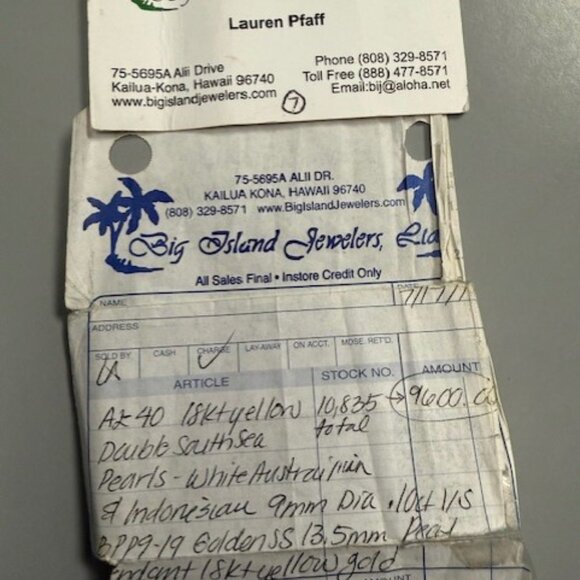 Lauren Pfaff
75-5695A Alii Drive
Kailua-Kona, Hawaii 96740
www.bigislandjewelers.com
Phone (808) 329-8571
Toll Free (888) 477-8571
Email:bij@aloha.net
7
75-5695A ALII DR.
KAILUA KONA, HAWAII 96740
(808) 329-8571 www.BigIslandJewelers.com
Big Island Jewelers, Ltd
All Sales Final • Instore Credit Only
NAME DATE
ADDRESS
SOLD BY CASH CHARGE LAY-AWAY ON ACCT. MDSE. RET'D.
ARTICLE STOCK NO. AMOUNT
18kt yellow 10,835 → 9600.00
Double South Sea total
Pearls - White Australian
& Indonesian 9mm Dia .10ct VS
BPP9-19 Golden SS 13.5mm Pearl
Pendant 18kt yellow gold
AMOUNT